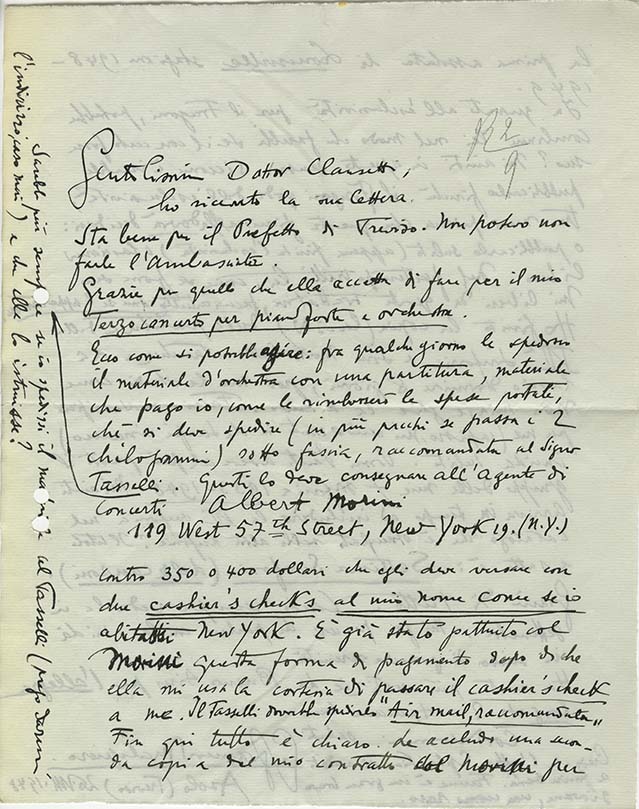 132
9
Gentilissimo Dottor Clausetti,
ho ricevuto la sua lettera.
Sta bene per il Prefetto di Treviso. Non potevo non
farle l'Ambasciata.
Grazie per quello che ella accetta di fare per il mio
Terzo concerto per pianoforte e orchestra.
Ecco come si potrebbe agire: fra qualche giorno le spedirò
il materiale d'orchestra con una partitura, materiale
che pago io, come le rimborserò le spese postali,
chè si deve spedire (in più pacchi se passa i 2
chilogrammi) sotto fascia, raccomandata al Signor
Tasselli. Questi lo deve consegnare all'Agente di
Concerti Albert Morini
119 West 57th Street, New York 19. (N.Y.)
contro 350 o 400 dollari che egli deve versare con
due cashier's checks al mio nome come se io
abitassi New York. È già stato pattuito col
Morini questa forma di pagamento dopo di che
ella mi usa la cortesia di passare il cashier's check
a me. Il Tasselli dovrebbe spedire "Air mail, raccomandata"
Fin qui tutto è chiaro. Le accludo una secon-
da copia del mio contratto col Morini per
Sarebbe più semplice se io spedissi il materiale al Tasselli (prego darmi
l'indirizzo, caso mai) e che ella lo istruisse?